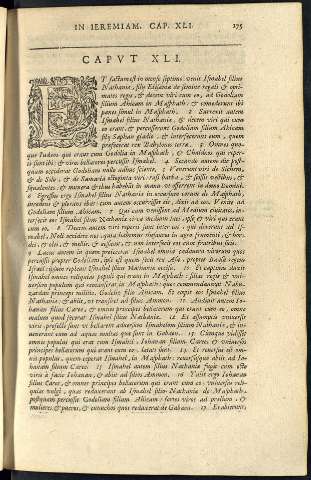 IN IEREMIAM. CAP. XLI. 275
CAPVT XLI.
ET factum est in mense septimo, venit Ismahel filius
Nathaniæ, filij Elisama de semine regali & opti-
mates regis, & decem viri cum eo, ad Godoliam
filium Ahicam in Masphath: & comederunt ibi
panes simul in Masphath. 2 Surrexit autem
Ismahel filius Nathaniæ, & decem viri qui cum
eo erant, & percusserunt Godoliam filium Ahicam
filij Saphan gladio, & interfecerunt eum, quem
præfecerat rex Babylonis terræ. 3 Omnes quo-
que Iudæos qui erant cum Godolia in Masphath, & Chaldæos qui reper-
ti sunt ibi, & viros bellatores percussit Ismahel. 4 Secundo autem die post-
quam occiderat Godoliam nullo adhuc sciente, 5 Venerunt viri de Sichem,
& de Silo, & de Samaria octoginta viri, rasi barba, & scissis vestibus, &
squalentes, & munera & thus habebant in manu, vt offerrent in domo Domini.
6 Egressus ergo Ismahel filius Nathaniæ in occursum eorum de Masphath,
incedens & plorans ibat: cum autem occurrisset eis, dixit ad eos, Venite ad
Godoliam filium Ahicam. 7 Qui cum venissent ad medium ciuitatis, in-
terfecit eos Ismahel filius Nathaniæ circa medium laci, ipse & viri qui erant
cum eo. 8 Decem autem viri reperti sunt inter eos, qui dixerunt ad Is-
mahel, Noli occidere nos, quia habemus thesauros in agro frumenti, & hor-
dei, & olei, & mellis, & cessauit, & non interfecit eos cum fratribus suis.
9 Lacus autem in quem proiecerat Ismahel omnia cadauera virorum quos
percussit propter Godoliam, ipse est quem fecit rex Asa, propter Baasa regem
Israël: ipsum repleuit Ismahel filius Nathaniæ occisis. 10 Et captiuas duxit
Ismahel omnes reliquias populi qui erant in Masphath: filias regis & vni-
uersum populum qui remanserat in Masphath: quos commendauerat Nabu-
zardan princeps militiæ, Godoliæ filio Ahicam. Et cepit eos Ismahel filius
Nathaniæ, & abiit, vt transiret ad filios Ammon. 11 Audiuit autem Io-
hanan filius Caree, & omnes principes bellatorum qui erant cum eo, omne
malum quod fecerat Ismahel filius Nathaniæ. 12 Et assumptis vniuersis
viris profecti sunt vt bellarent aduersum Ismahelem filium Nathaniæ, & in-
uenerunt eum ad aquas multas quæ sunt in Gabaon. 13 Cumque vidisset
omnis populus qui erat cum Ismahel: Iohanan filium Caree & vniuersos
principes bellatorum qui erant cum eo, lætati sunt. 14 Et reuersus est om-
nis populus, quem ceperat Ismahel, in Masphath: reuersusque abiit ad Io-
hanan filium Caree. 15 Ismahel autem filius Nathaniæ fugit cum octo
viris à facie Iohanan, & abiit ad filios Ammon. 16 Tulit ergo Iohanan
filius Caree, & omnes principes bellatorum qui erant cum eo, vniuersas reli-
quias vulgi, quas reduxerat ab Ismahel filio Nathaniæ de Masphath,
postquam percussit Godoliam filium Ahicam: fortes viros ad prælium, &
mulieres & pueros, & eunuchos quos reduxerat de Gabaon. 17 Et abierunt,